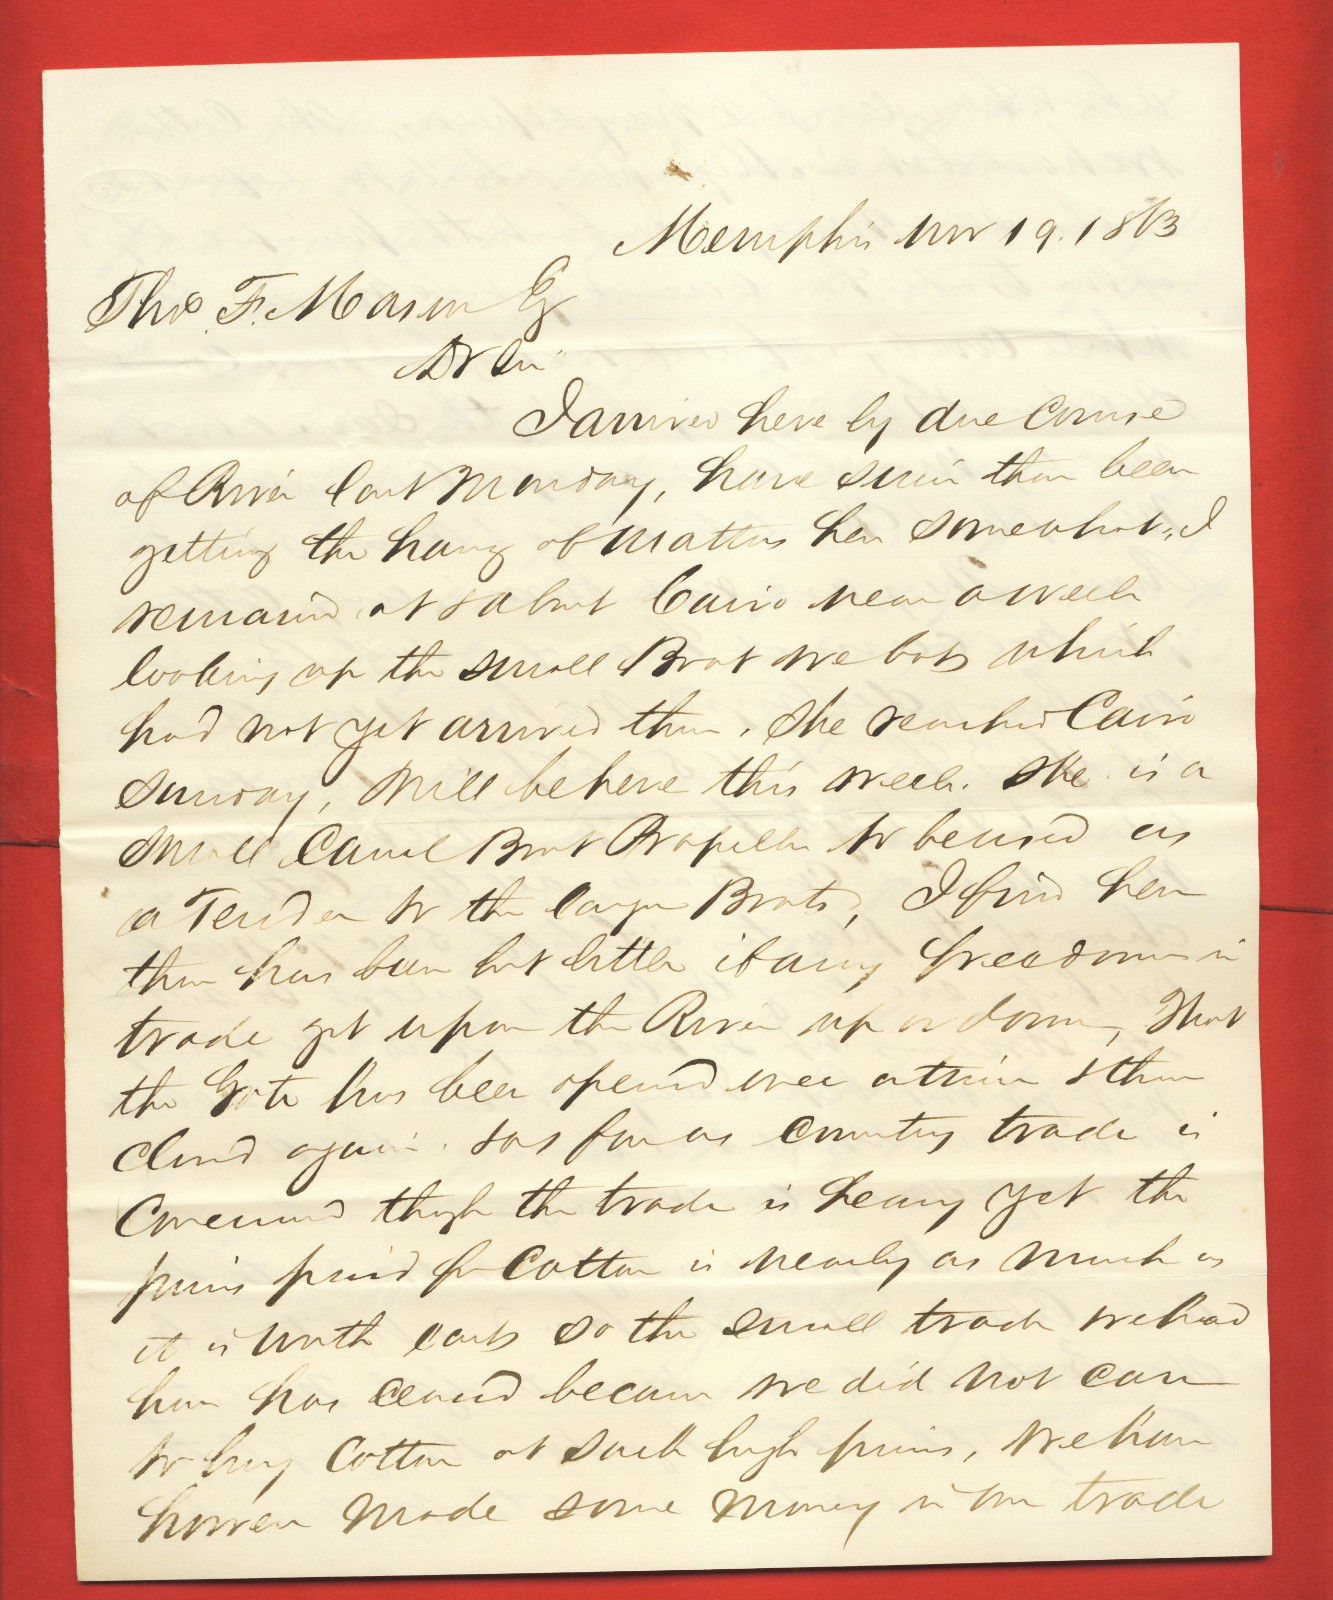 Memphis Nov 19. 1863
Thos. F. Mason Esq
Dr Sir
I arrived here by due course
of River last Monday, have since then been
getting the hang of matters here somewhat, I
remained at & about Cairo near a week
looking up the small Boat we bot which
had not yet arrived there. She reached Cairo
Sunday, Will be here this week. She is a
small Canal Boat Propeller to be used as
a Tender to the larger Boats, I find here
there has been but little if any freedom in
trade yet upon the River up or down, That
the Gate has been opened once a time & then
closed again. & as far as Country trade is
Concerned though the trade is heavy yet the
prices paid for Cotton is nearly as much as
it is worth East so the small trade we had
here has ceased because we did not care
to buy Cotton at such high prices, We have
however made some money in our trade